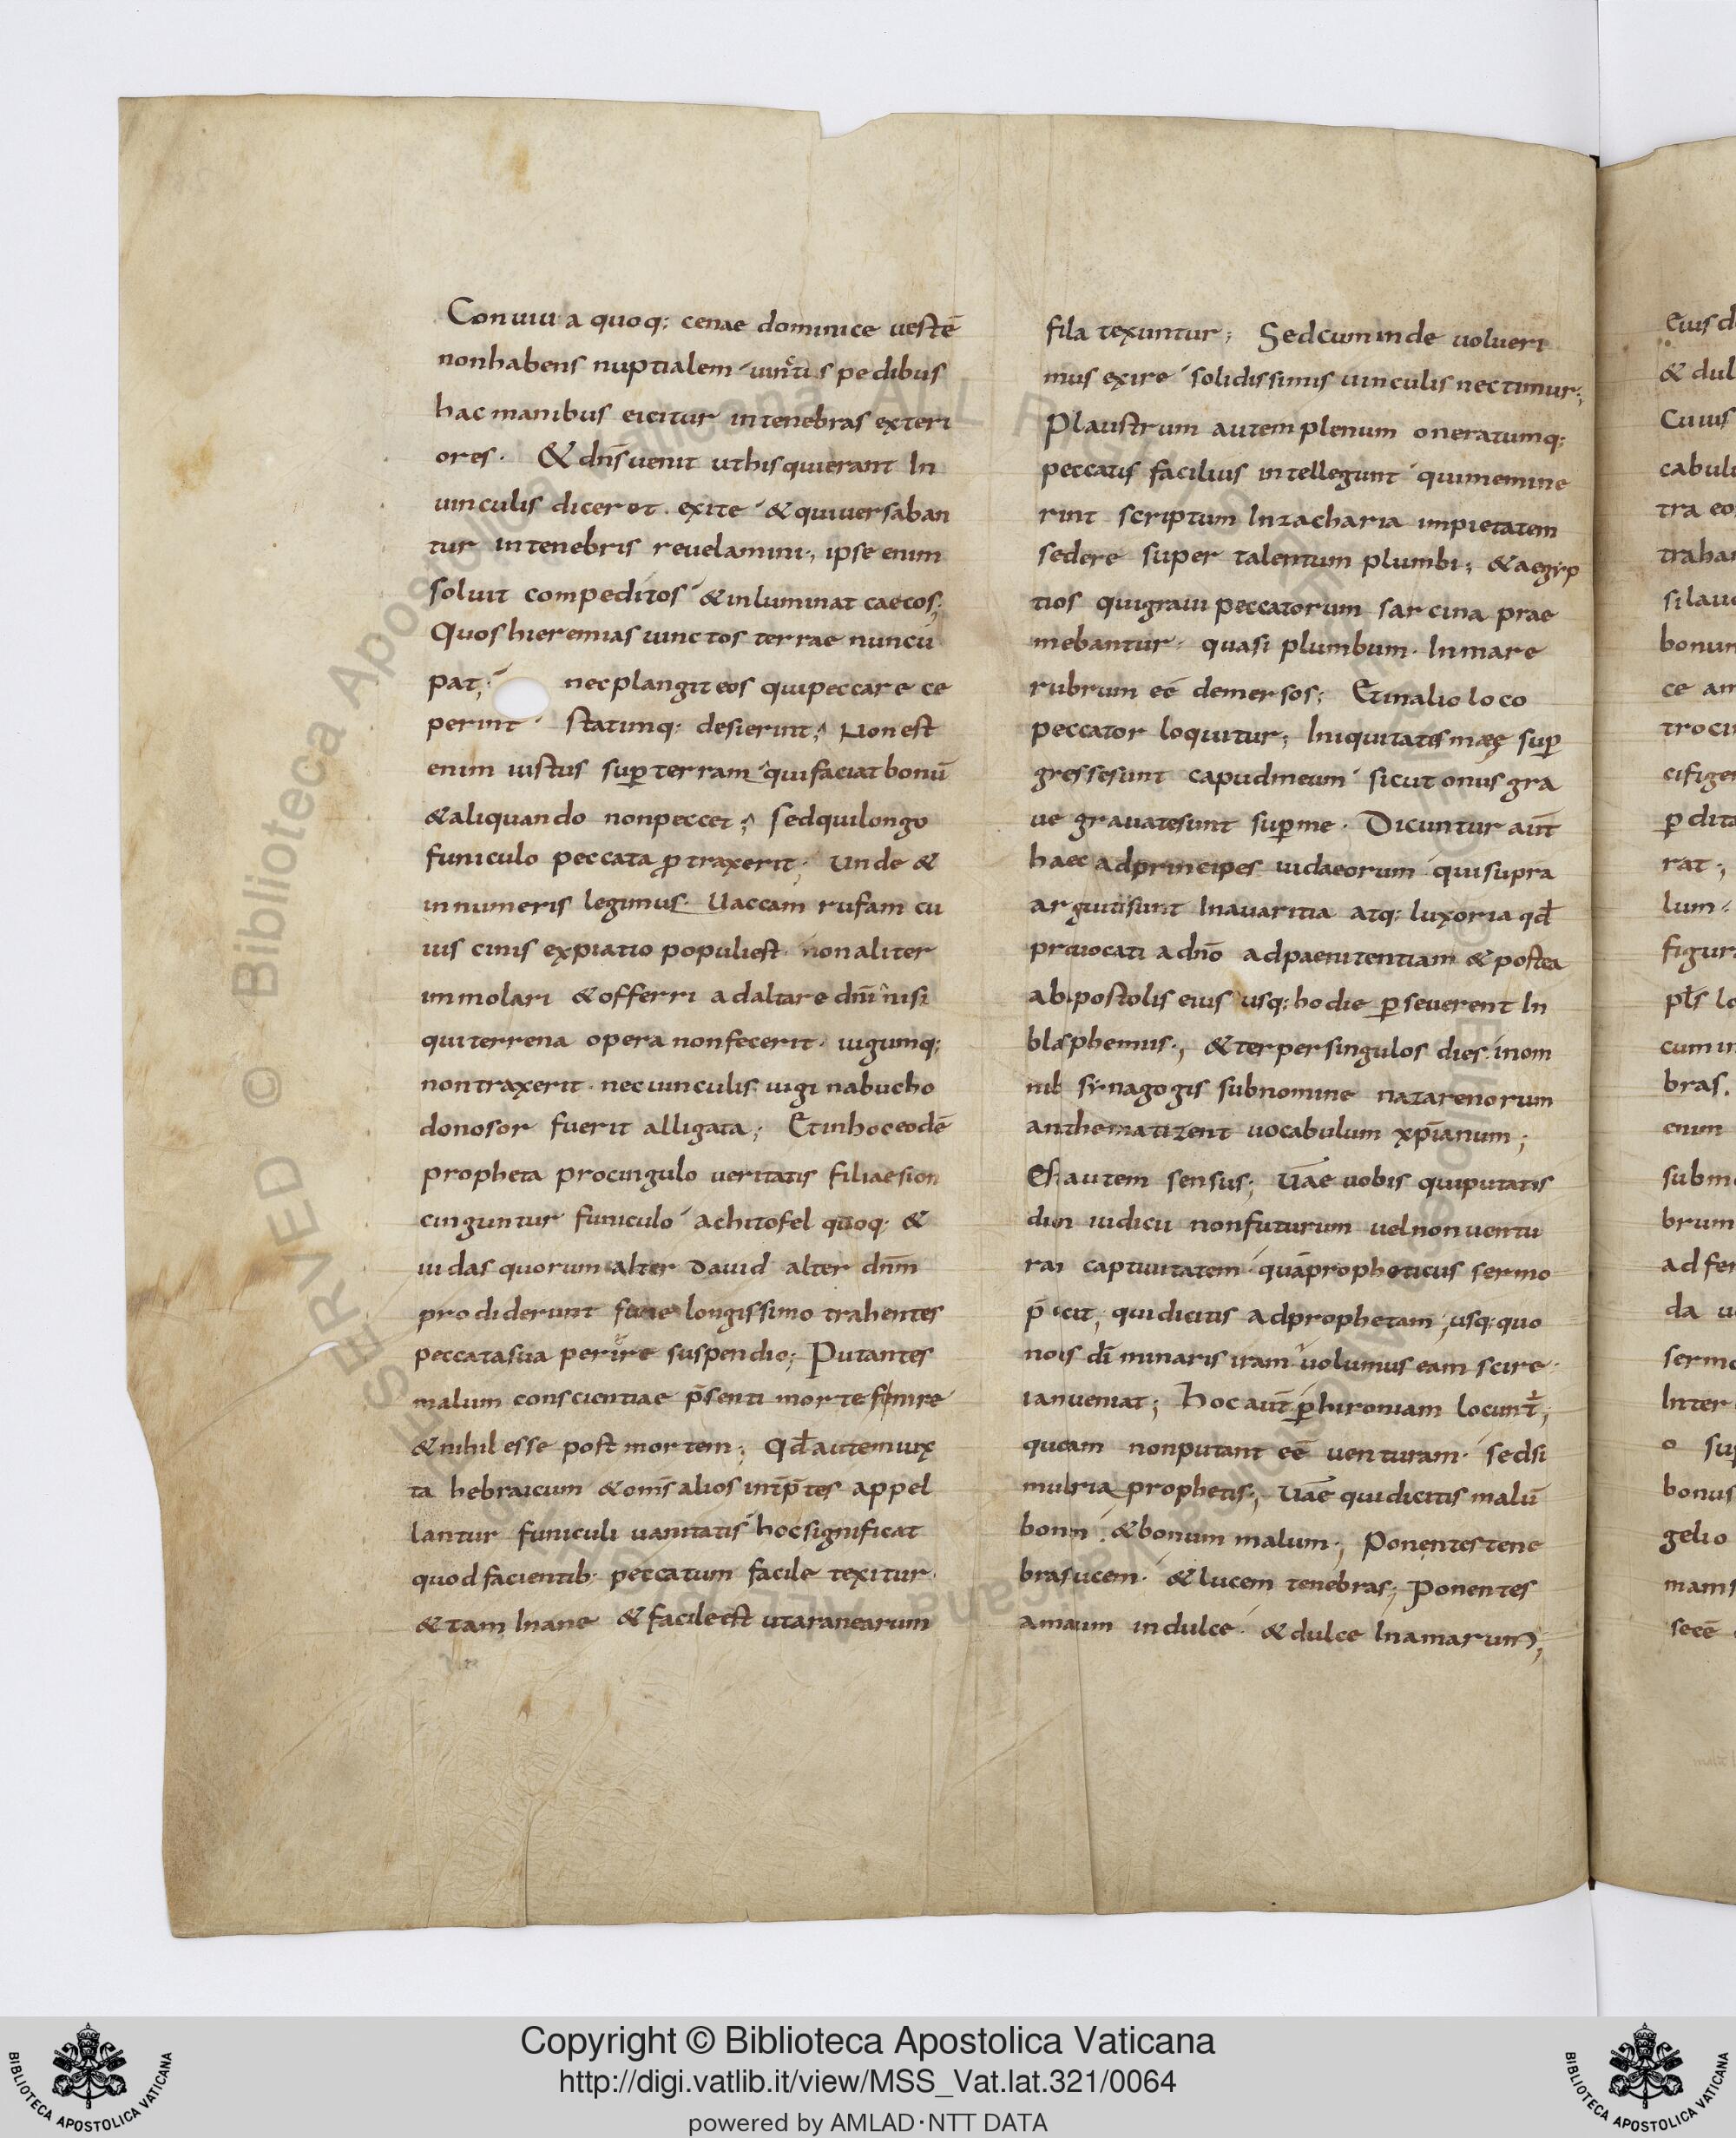 Conuiuia quoq; cenae dominice uestē
nonhabens nuptialem uinctus pedibus
hac manibus eicitur intenebras exteri
ores. & dn̄s uenit uthis quierant In
uinculis diceret. exite & quiuersaban
tur intenebris reuelamini; ipse enim
soluit compeditos & inluminat caecos;
Quos hieremias uinctos terrae nuncu
pat; nec plangit eos quipeccare ce
perint statimq; desierint; Non est
enim iustus suꝑ terram quifaciat bonū
& aliquando nonpeccet; sedquilongo
funiculo peccata ꝓtraxerit; Unde &
innumeris legimus. Uaccam rufam cu
ius cinis expiatio populiest. non aliter
immolari & offerri adaltare dn̄i nisi
quiterrena opera nonfecerit. iugumq;
nontraxerit. nec uinculis iugi nabucho
donosor fuerit alligata; Etinhoc eodē
propheta procingulo ueritatis filiaesion
cinguntur funiculo achitofel quoq; &
iudas quorum alter dauid alter dn̄m
prodiderunt fune longissimo trahentes
peccatasua perire suspendio; Putantes
malum conscientiae p̄senti morte finire
& nihil esse post mortem; Qd̄ autem iux
ta hebraicum & om̄s alios int̄p̄tes appel
lantur funiculi uanitatis hoc significat
quod facientib; peccatum facile texitur.
& tam Inane & facile est utaranearum
fila texuntur; Sedcum inde uolueri
mus exire solidissimis uinculis nectimur;
Plaustrum autem plenum oneratumq;
peccatis facilius intellegunt quimemine
rint scriptum Inzacharia impietatem
sedere super talentum plumbi; & aegyp
tios quigraui peccatorum sarcina prae
mebantur. quasi plumbum. Inmare
rubrum eē demersos; Etinalio loco
peccator loquitur; Iniquitatis meę suꝑ
gressesunt capudmeum sicut onus gra
ue grauatesunt suꝑme. Dicuntur aut̄
haec adprincipes iudaeorum quisupra
arguitisunt Inauaritia atq; luxoria qd̄
prouocati adn̄o adpaenitentiam & postea
abapostolis eius usq; hodie ꝑseuerent In
blasphemiis; & terpersingulos dies. inom
nib synagogis subnomine nazarenorum
anthematizent uocabulum xp̄ianum;
Est autem sensus; Uae uobis quiputatis
diem iudicii nonfuturum uelnonuentu
ram captiuitatem quāpropheticus sermo
p̄dicit; quidicitis adprophetam; usq;quo
nobis dī minaris iram uolumus eam scire
iamueniat; hoc aūt ꝑhironiam locunt̄;
queam nonputant eē uenturam. sedsi
mulria prophetis; Uae quidicitis malū
bonum & bonum malum; Ponentes tene
braslucem. & lucem tenebras; Ponentes
amarum indulce. & dulce Inamarum;
Eiusd
& dul
Cuius
cabulu
tra eo
silaue
bonum
ce am
trocin
cifige
ꝑdita
rat;
lum
figur
cumin
bras.
enim
subm
brum
adfer
da u
sermo
Inter
o su
bonus
gelio
mams
Copyright © Biblioteca Apostolica Vaticana
http://digi.vatlib.it/view/MSS_Vat.lat.321/0064
powered by AMLAD·NTT DATA
BIBLIOTECA APOSTOLICA VATICANA
BIBLIOTECA APOSTOLICA VATICANA